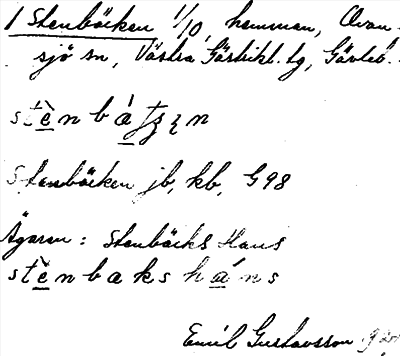 1 Stenbäcken 1/10, hemman, Ovan-
sjö sn, Västra Gästrikl. tg, Gävleb.
stènbátʂɛn
Stenbäcken jb, kb, G 98
Ägaren: Stenbäcks Hans
stènbaks háns
Emil Gustavsson